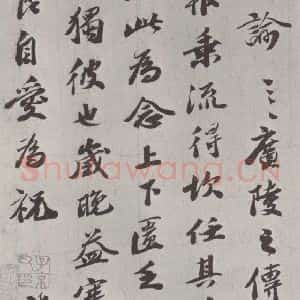 諭廣陵之傳
乘流得坎任其
此為念上下匱乏
獨彼也歲晚益寒
自愛為祝
Shufawang.CN